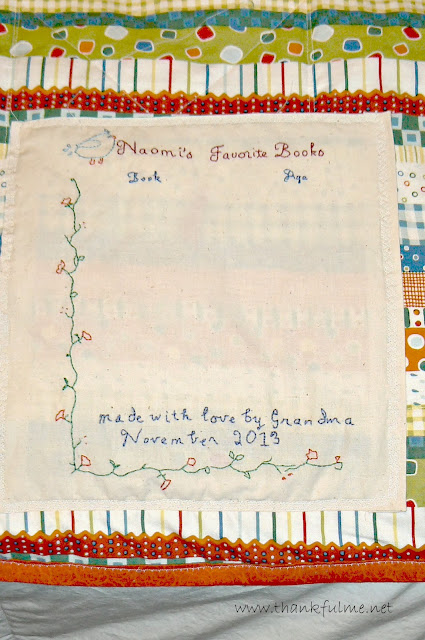 Naomi's Favorite Books
Book Age
made with love by Grandma
November 2013
www.thankfulme.net